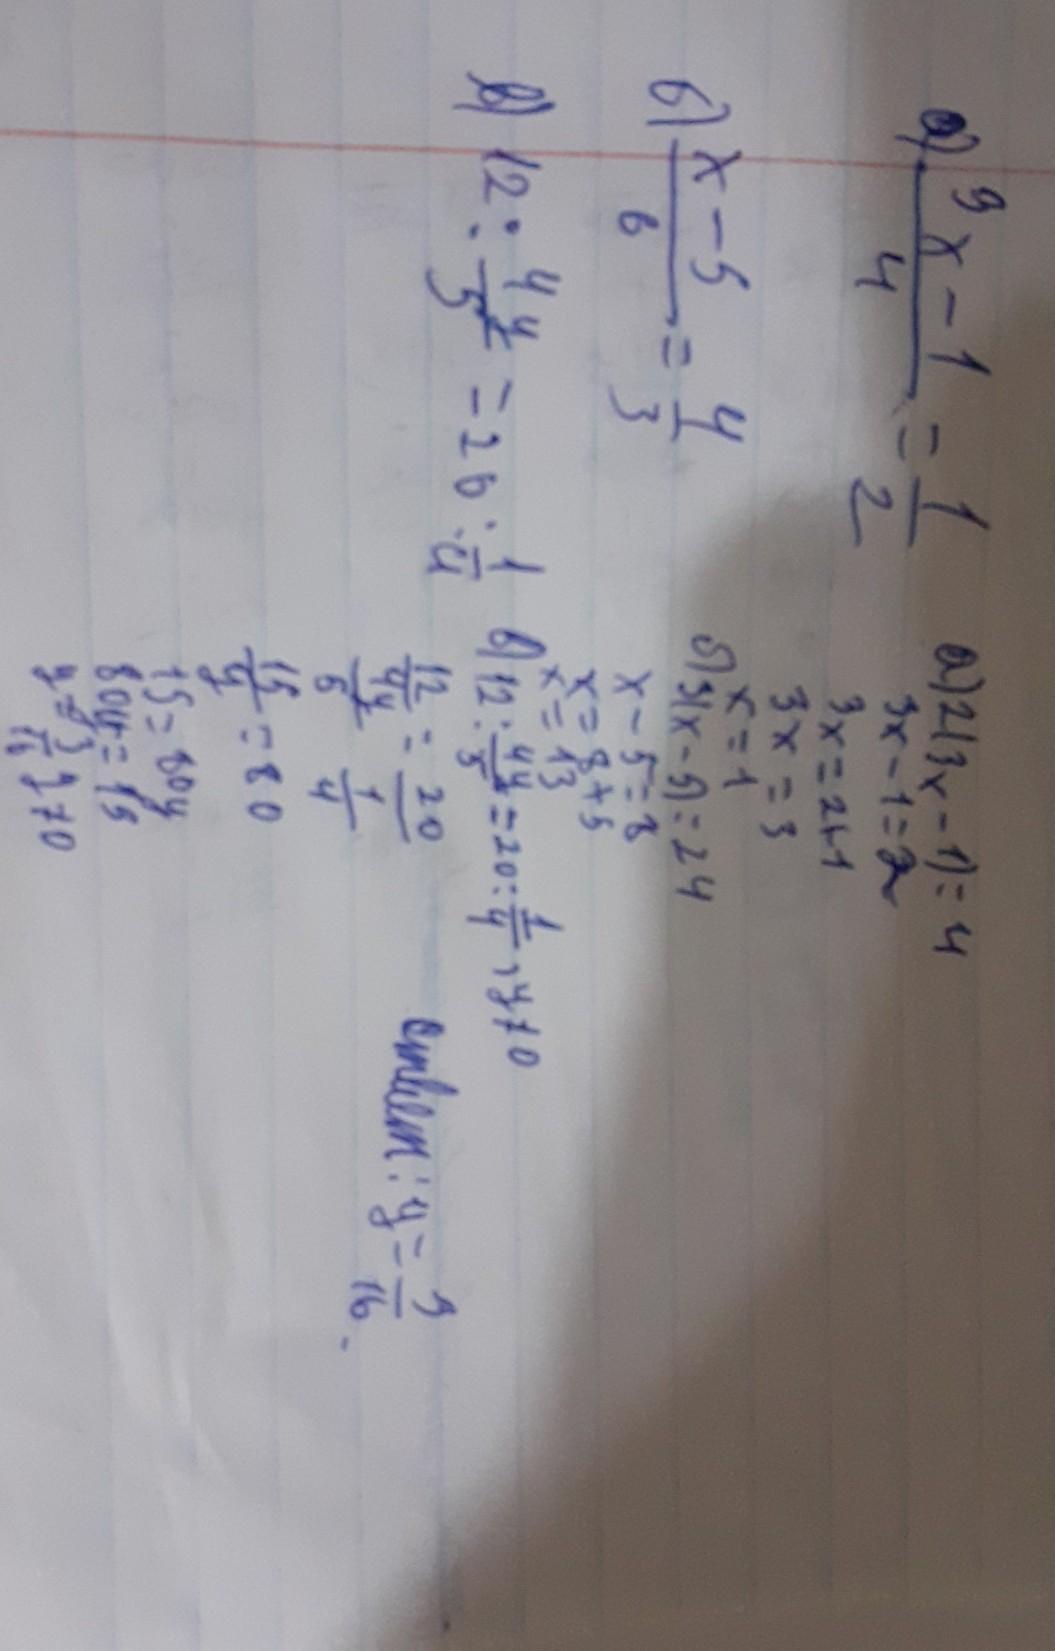 а) 3x-1/4 = 1/2
б) x-5/6 = 4/3
в) 12 : 4y/5 = 20 : 1/4
а) 2(3x-1)=4
3x-1=2
3x=2+1
3x=3
x=1
б) 3(x-5)=24
x-5=8
x=8+5
x=13
в) 12 : 4y/5 = 20 : 1/4, y≠0
12/4y/5 = 20/1/4
15/y = 80
15=80y
80y=15
y=3/16, y≠0
ответ: y=3/16.